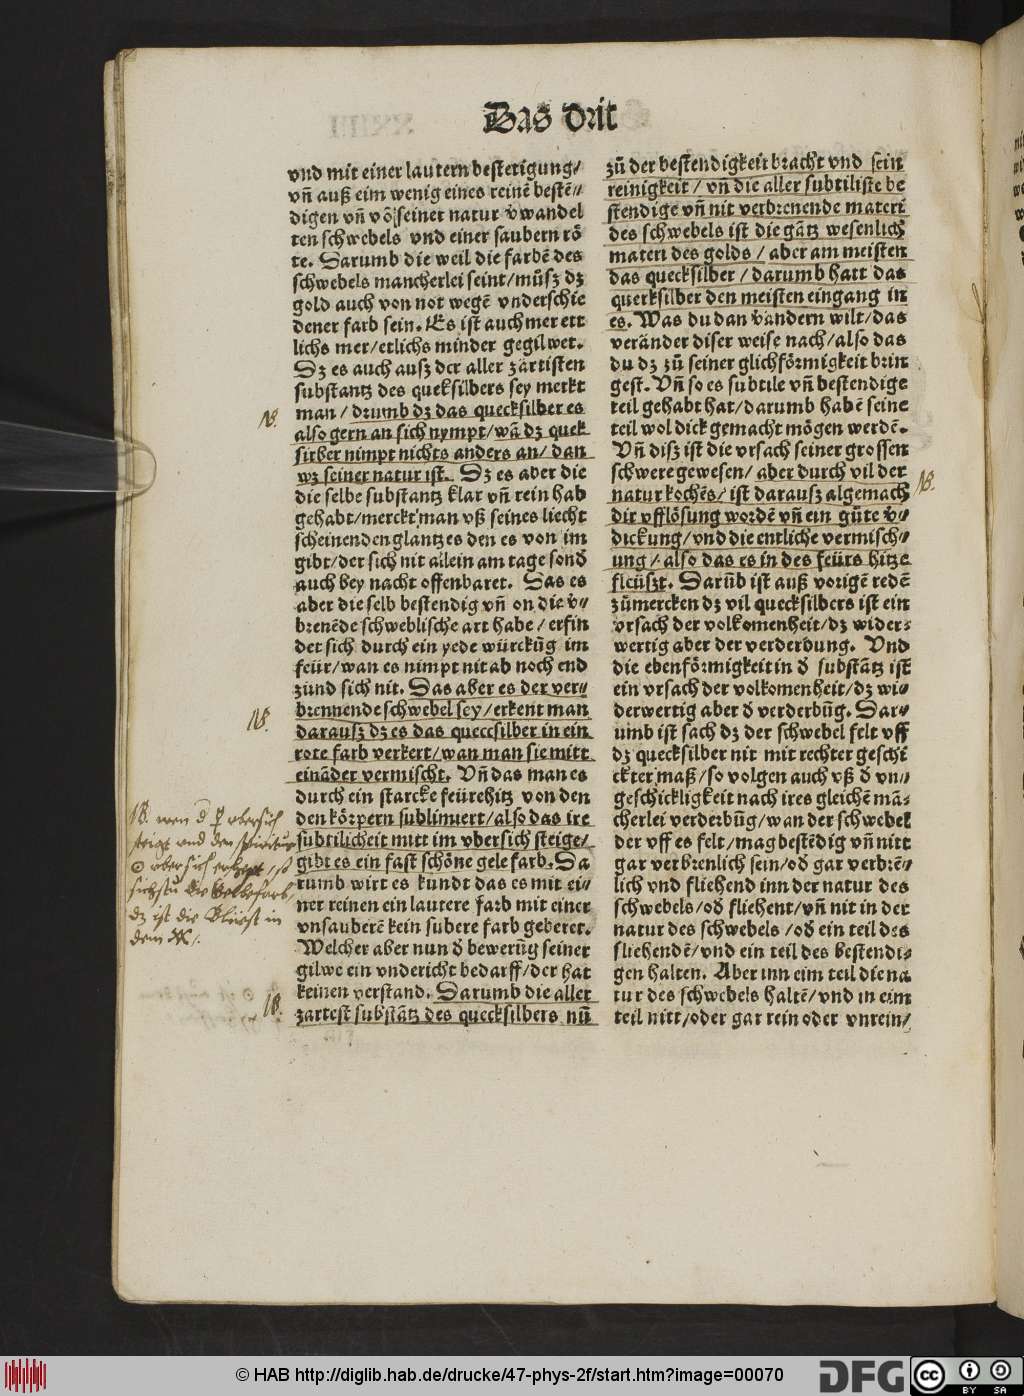 Das drit
vnd mit einer lautern bestetigung/
vñ auß eim wenig eines reinē bestē//
digen vñ võ seiner natur v̄wandel
ten schwebels vnd einer saubern rö
te. Darumb die weil die farbē des
schwebels mancherlei seint/můsz dz
gold auch von not wegē vnderschie
dener farb sein. Es ist auch mer ett
lichs mer/etlichs minder gegilwet.
Dz es auch ausz der aller zartisten
substantz des queksilbers sey merkt
man/ drumb dz das quecksilber es
also gern an sich nympt/wā dz quek
silber nimpt nichts anders an/ dan
wz seiner natur ist. Dz es aber die
die selbe substantz klar vñ rein hab
gehabt/merckt man vß seines liecht
scheinenden glantzes den es von im
gibt/der sich nit allein am tage sond̄
auch bey nacht offenbaret. Das es
aber die selb bestendig vñ on die v̄//
brenēde schweblische art habe/ erfin
det sich durch ein yede würckūg im
feür/wan es nimpt nit ab noch end
zünd sich nit. Das aber es der ver//
brennende schwebel sey/erkent man
darausz dz es das queccsilber in ein
rote farb verkert/wan man sie mitt
eināder vermischt. Vñ das man es
durch ein starcke feürehitz von den
den körpern sublimiert/also das ire
subtilicheit mitt im vbersich steige/
gibt es ein fast schöne gele farb. Da
rumb wirt es kundt das es mit ei//
ner reinen ein lautere farb mit einer
vnsauberē kein subere farb geberet.
Welcher aber nun d̄ bewerūg seiner
gilwe ein vndericht bedarff/der hat
keinen verstand. Darumb die aller
zartest substātz des quecksilbers nū
zů der bestendigkeit bracht vnd sein
reinigkeit/ vñ die aller subtiliste be
stendige vñ nit verbrenende materi
des schwebels ist die gātz wesenlich
materi des golds/ aber am meisten
das quecksilber/ darumb hatt das
quecksilber den meisten eingang in
es. Was du dan v̄andern wilt/das
veränder diser weise nach/also das
du dz zů seiner glichförmigkeit brin
gest. Vñ so es subtile vñ bestendige
teil gehabt hat/darumb habē seine
teil wol dick gemacht mögen werdē.
Vñ disz ist die vrsach seiner grossen
schwere gewesen/ aber durch vil der
natur kochēs/ ist darausz algemach
dir vfflösung wordē vñ ein gūte v̄//
dickung/vnd die entliche vermisch//
ung/ also das es in des feürs hitze
fleüszt. Darūb ist auß vorigē redē
zůmercken dz vil quecksilbers ist ein
vrsach der volkomenheit/dz wider//
wertig aber der verderbung. Vnd
die ebenförmigkeit in d̄ substātz ist
ein vrsach der volkomenheit/dz wi//
derwertig aber d̄ verderbūg. Dar//
umb ist sach dz der schwebel felt vff
dz quecksilber nit mit rechter geschi
ckter maß/so volgen auch vß d̄ vn//
geschickligkeit nach ires gleichē mā//
cherlei verderbūg/wan der schwebel
der vff es felt/mag bestēdig vñ nitt
gar verbrenlich sein/od̄ gar verbrē//
lich vnd fliehend inn der natur des
schwebels/od̄ fliehent/vñ nit in der
natur des schwebels/od̄ ein teil des
fliehendē/vnd ein teil des bestendi//
gen halten. Aber inn eim teil die na
tur des schwebels haltē/vnd in eim
teil nitt/oder gar rein oder vnrein/
NB.
NB.
NB. wen d ☿ vbersich
steigt und den spiritum
☉ vbersich
die Gelbefarb,
dz ist die Blüest in
dem
NB.
NB.
© HAB http://diglib.hab.de/drucke/47-phys-2f/start.htm?image=00070
DFG
cc BY SA